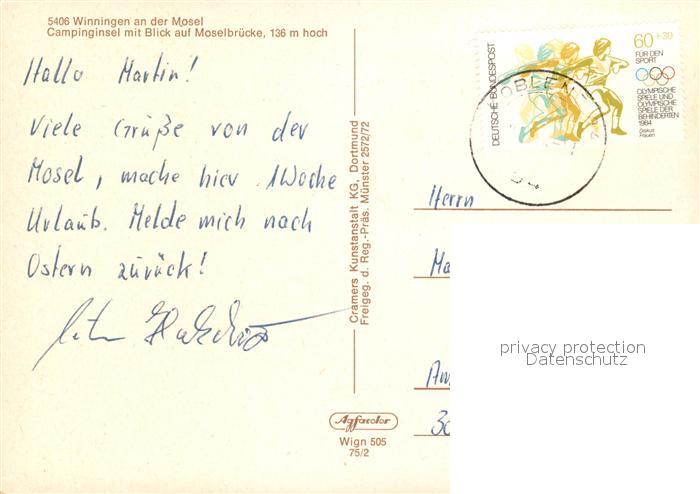 5406 Winningen an der Mosel
Campinginsel mit Blick auf Moselbrücke, 136 m hoch
Hallo Martin!
Viele Grüße von der
Mosel, mache hier 1 Woche
Urlaub. Melde mich nach
Ostern zurück!
Cramers Kunstanstalt KG, Dortmund
Freigeg. d. Reg.-Präs. Münster 2572/72
Agfacolor
Wign 505
75/2
DEUTSCHE BUNDESPOST
60+30
FÜR DEN
SPORT
OLYMPISCHE
SPIELE UND
OLYMPISCHE
SPIELE DER
BEHINDERTEN
1984
Diskus
Frauen
OBLEN
Herrn
Ma
privacy protection
Datenschutz
Am
30